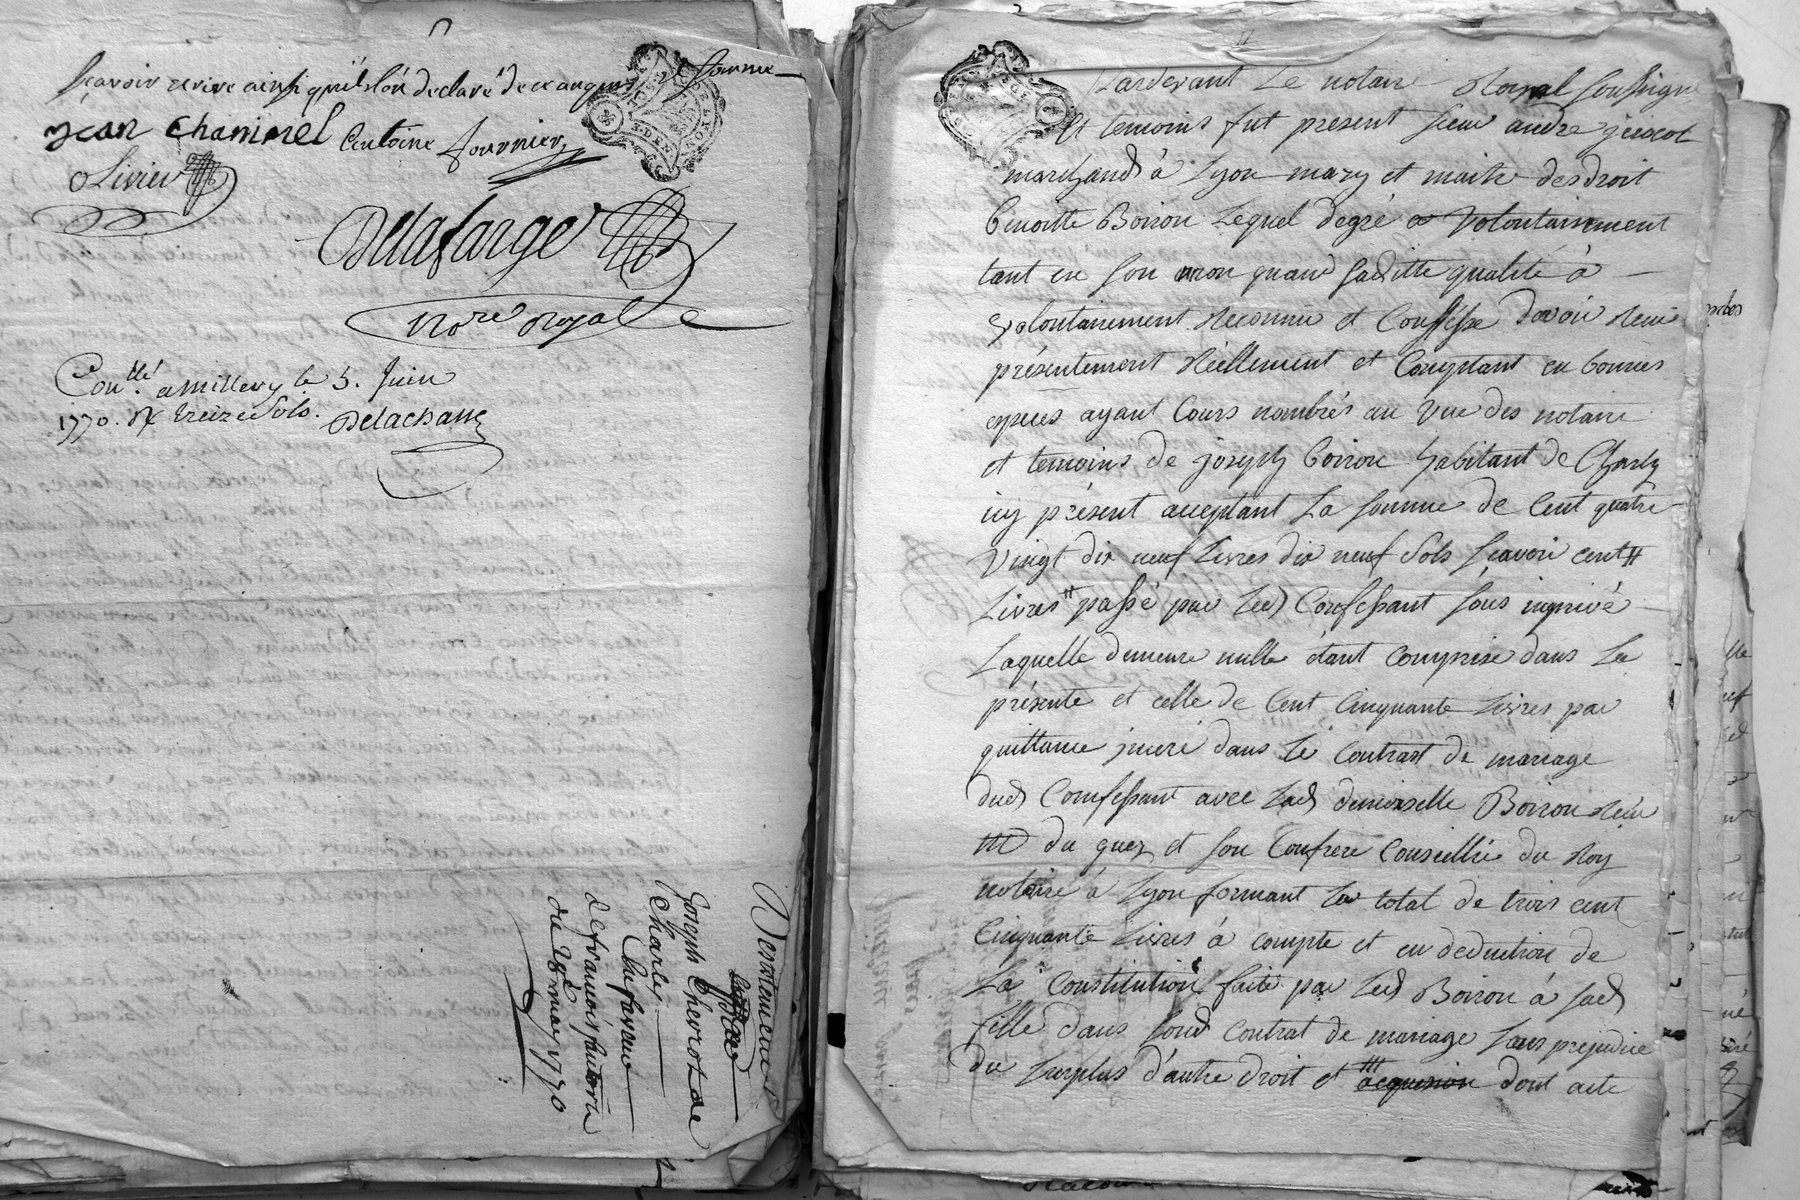 sçavoir ecrire ainsi qu'ils l'on declaré de ce enquis
jean chaminel Antoine fournier
olivier
Delafarge
No.re Royal
Con.llé a millery le 5. Juin
1770. R treize sols. Delachass
Testament
joseph Cherrot de
Charly
En faveur
de francois
du 28 may 1770
Pardevant Le notaire Royal soussigné
Et temoins fut present sieur andre
marchand à Lyon mary et maitre des droit
benoitte Boiron Lequel degré et volontairement
tant en son nom quand saditte qualité à
volontairement Reconnu et Confessé d'avoir Receu
présentement Réellement et Comptant en bonnes
especes ayant Cours nombrés au vue des notaire
et temoins de joseph boiron habitant de Charly
icy présent acceptant La somme de Cent quatre
vingt dix neuf Livres dix neuf sols scavoir cent
Livres passé par Led Confessant sous inprivé
Laquelle demeure nulle étant comprise dans La
présente et celle de Cent Cinquante Livres par
quittance dans Le Contrast de mariage
dud Comfessant avec Lad demoiselle Boiron Receu
M du guey et son Confrere Conseillié du Roy
notaire à Lyon formant Le total de trois cent
Cinquante Livres à compte et en deduction de
La Constitution faite par Led Boiron à sad
fille dans soud contrat de mariage sans prejudice
du surplus d'autre droit et dont acte